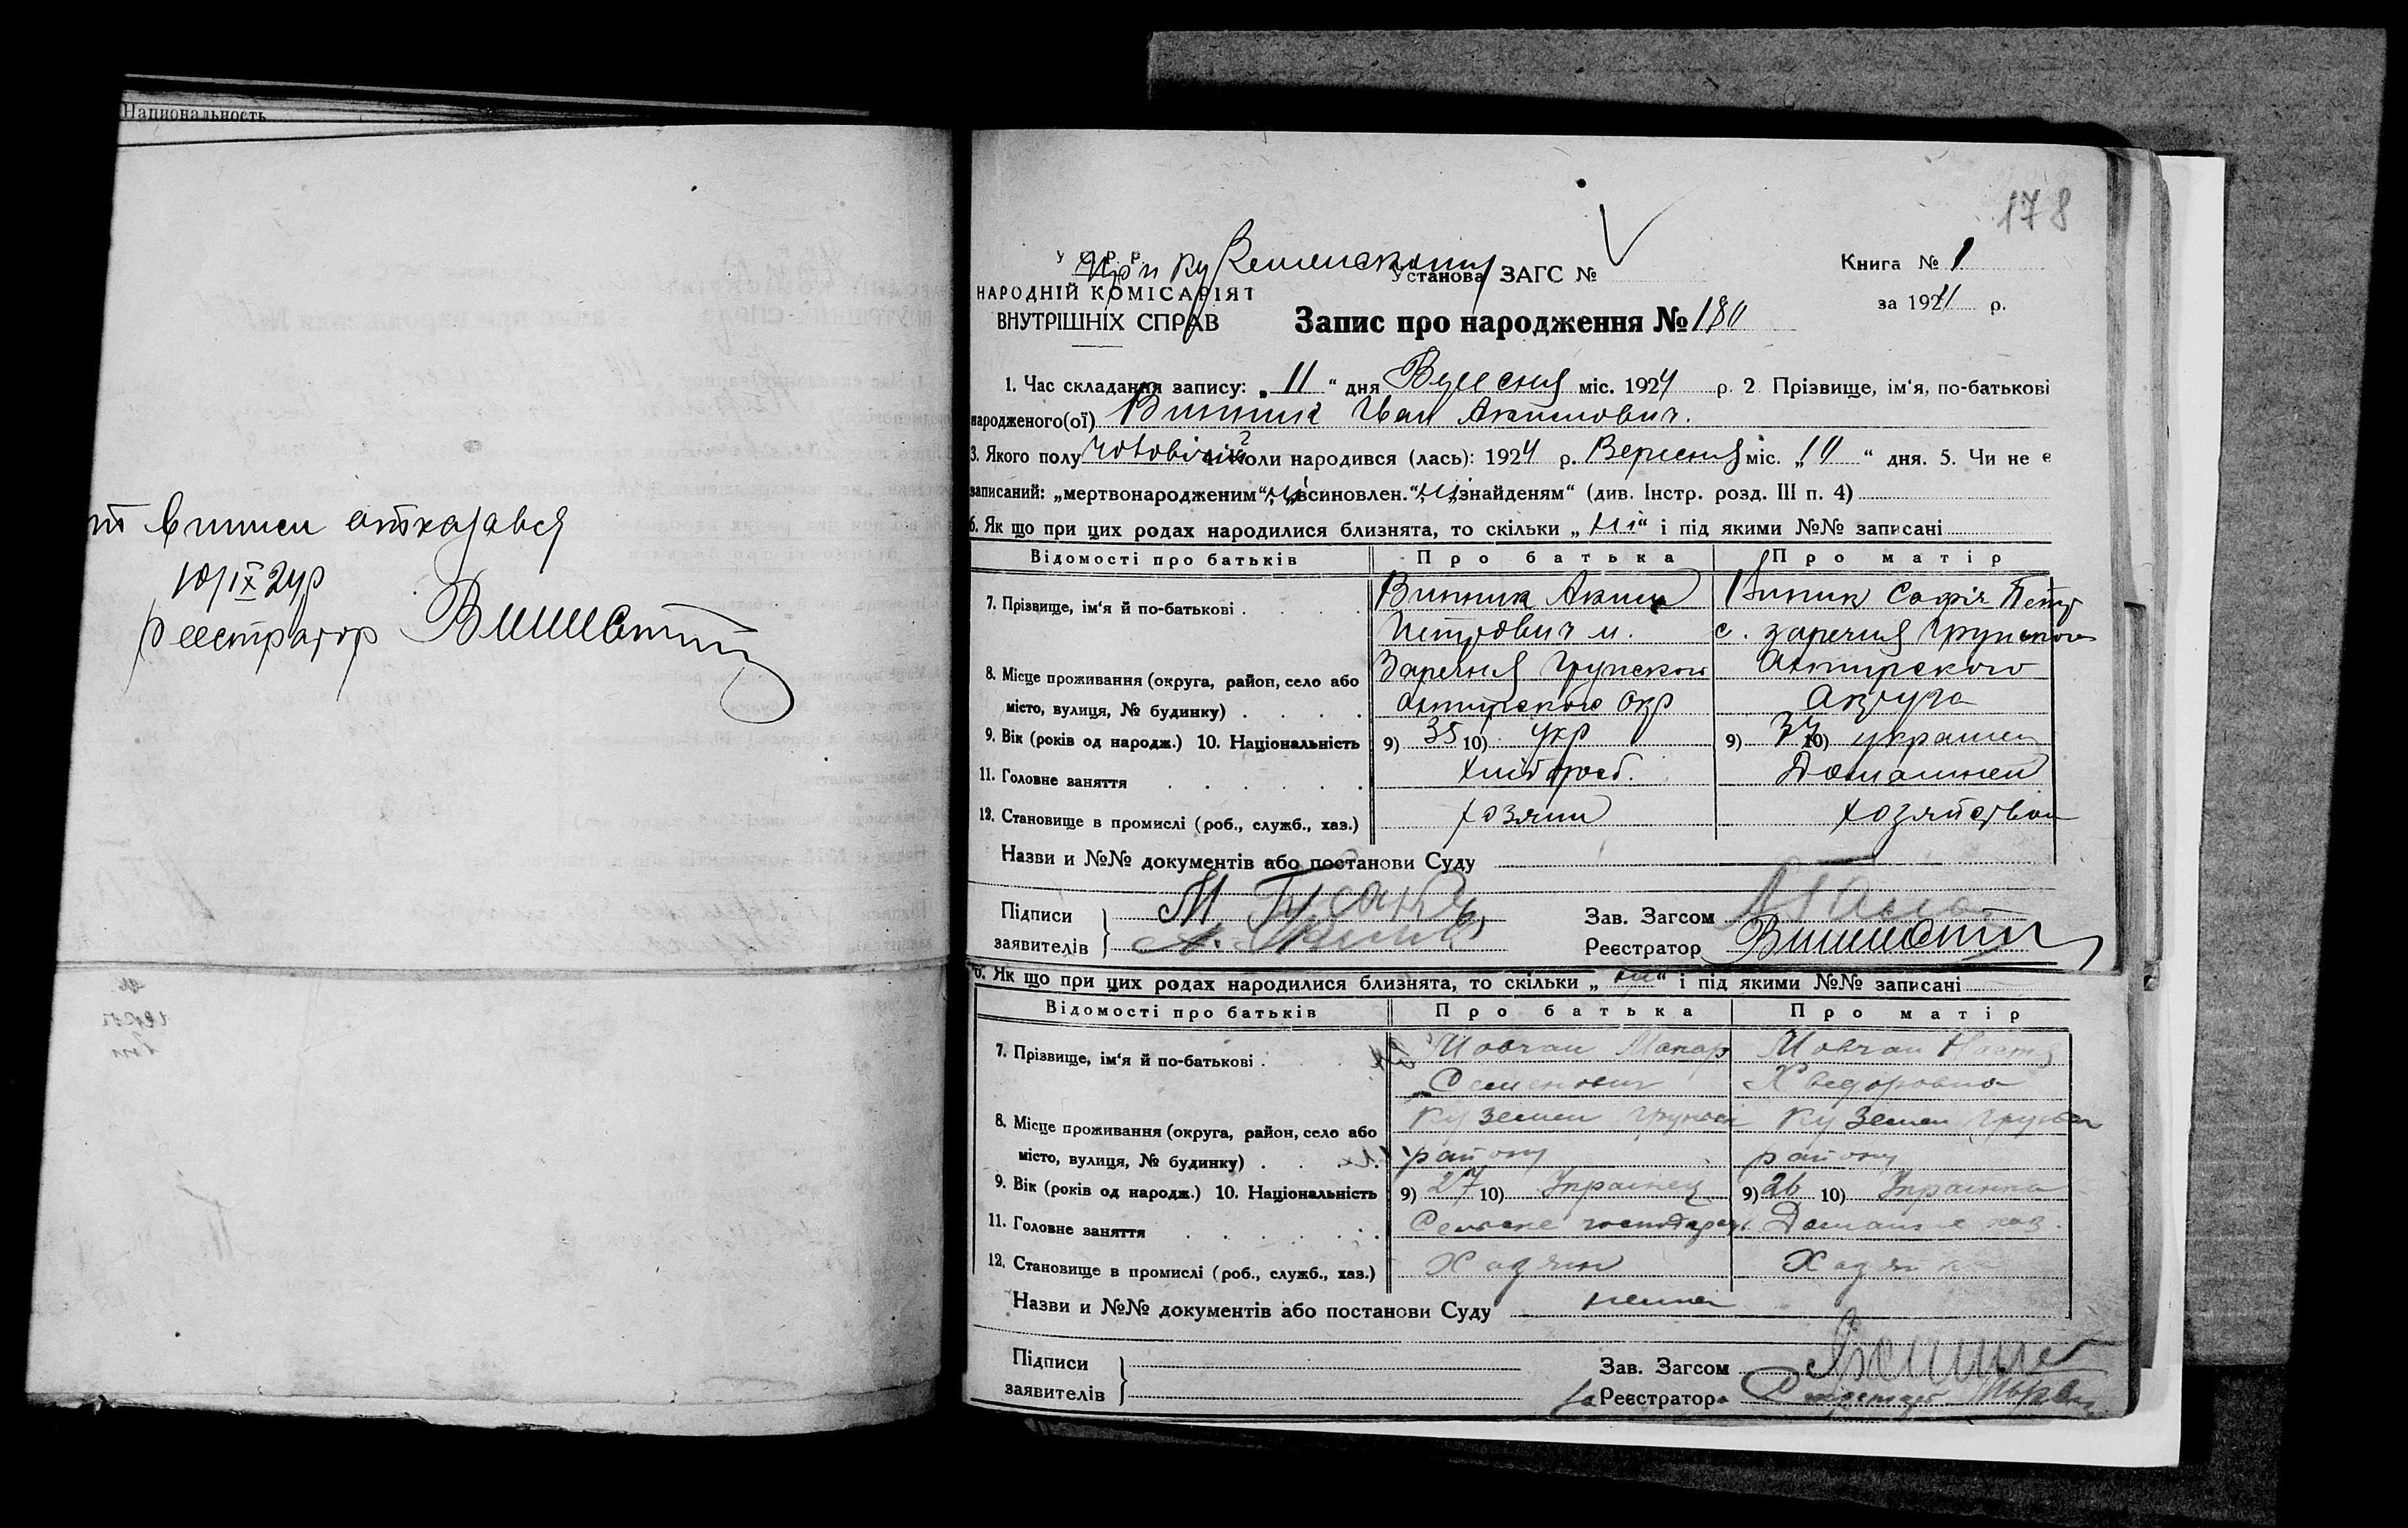 Национальность
вписи отказався
10/IX 24р
Реестратор
178
У С Р Р
При Куземенскому
Установа ЗАГС №
Книга № 1
НАРОДНІЙ КОМІСАРІЯТ
ВНУТРІШНІХ СПРАВ
за 1924 р.
Запис про народження № 180
1. Час складання запису: „ 11 “ дня Вересня міс. 1924 р. 2 Прізвище, ім‘я, по-батькові
народженого(ої) Винник Иван Акимович.
3. Якого полу чоловічий 4. Коли народився (лась): 1924 р. Вересня міс. „ 10 “ дня. 5. Чи не є
записаний: „мертвонародженим“, ні „всиновлен.“, ні „знайденям“ (див. Інстр. розд. III п. 4)
6. Як що при цих родах народилися близнята, то скільки „ ні “ і під якими №№ записані
Відомості про батьків Про батька Про матір
7. Прізвище, ім‘я й по-батькові . Винник Аким Винник Софія Петр
Петрович м. с. Заречня Грунского
8. Місце проживання (округа, район, село або Заречня Грунского Ахтирского
місто, вулиця, № будинку) . Ахтирского Окр Округа
9. Вік (років од народж.) 10. Національність 9) 35 10) Укр 9) 37 10) украин
11. Головне заняття хлібороб. Домашнеи
12. Становище в промислі (роб., служб., хаз.) хозяин хозяйством
Назви и №№ документів або постанови Суду
Підписи М. Зав. Загсом
заявителів А. Реєстратор
6. Як що при цих родах народилися близнята, то скільки „ ни “ і під якими №№ записані
Відомості про батьків Про батька Про матір
7. Прізвище, ім‘я й по-батькові . Мовчан Макар Мовчан Настя
Семенович Хведоровна
8. Місце проживання (округа, район, село або Куземен Грунскі Куземен Грунск
місто, вулиця, № будинку) . району району
9. Вік (років од народж.) 10. Національність 9) 27 10) Украінец 9) 26 10) Украінка
11. Головне заняття Сельске господарст. Домашнє хоз.
12. Становище в промислі (роб., служб., хаз.) Хазяин Хазяйка
Назви и №№ документів або постанови Суду нема
Підписи Зав. Загсом
заявителів за Реєстратора Секретарь